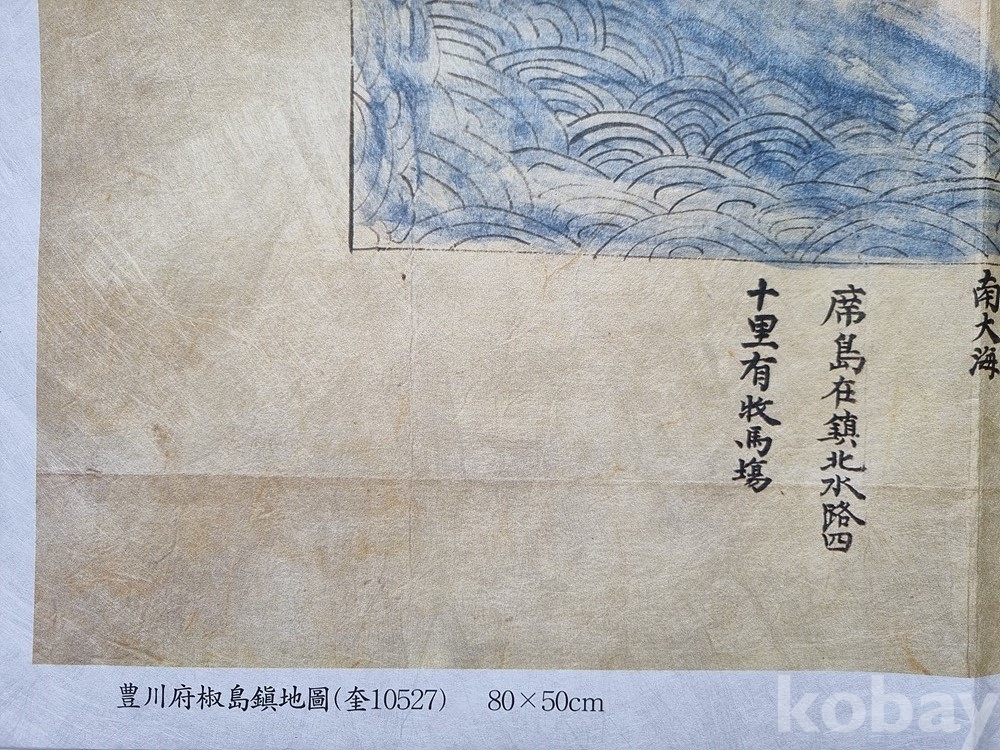 南大海
席島在鎮北水路四
十里有牧馬場
豊川府椒島鎭地圖(奎10527) 80×50cm
kobay